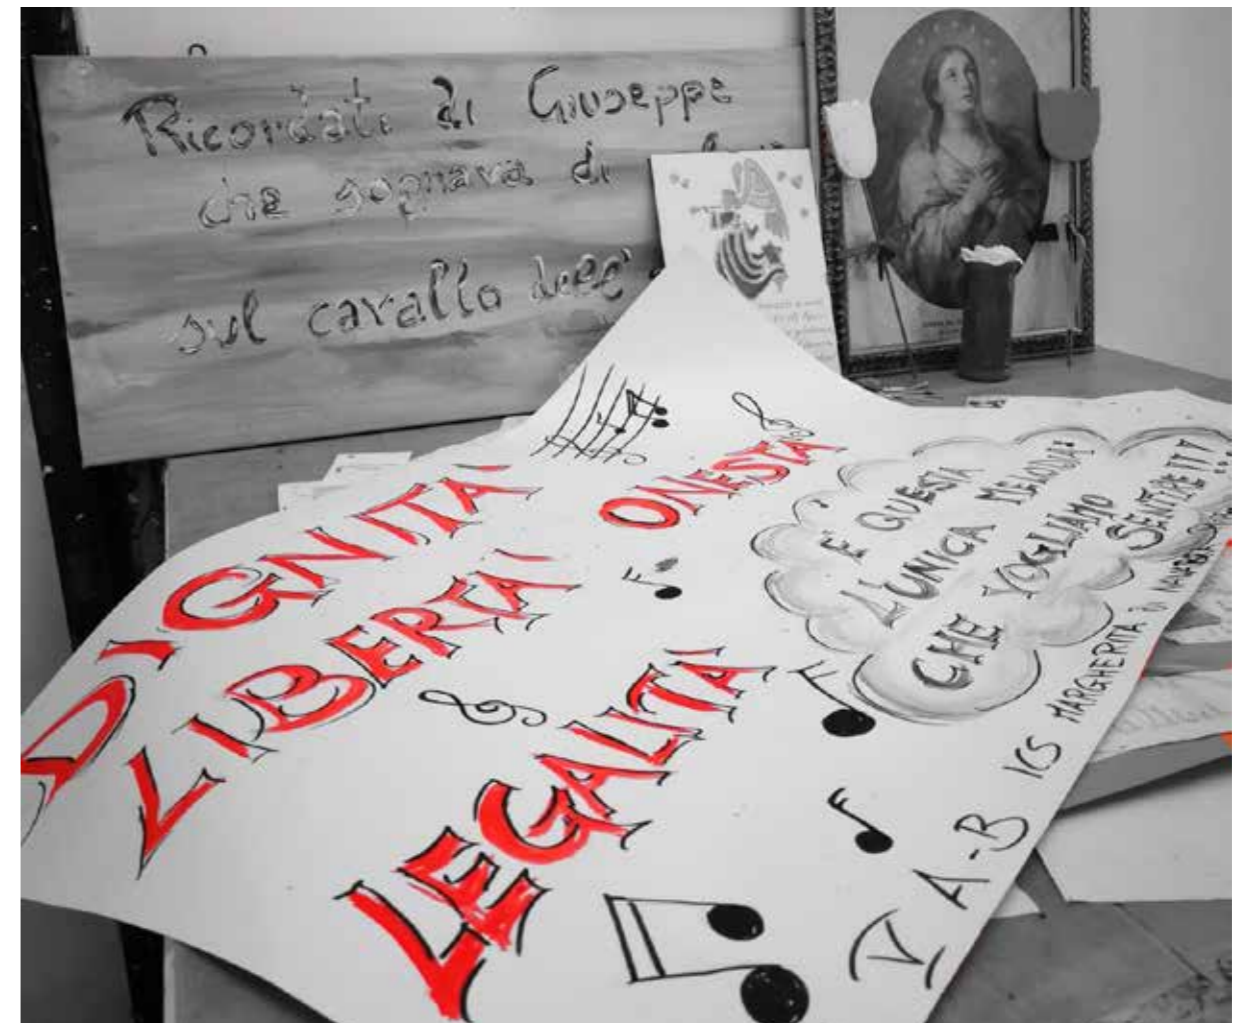 Ricordati di Giuseppe
che sognava di
sul cavallo dell'
DIGNITÀ
LIBERTÀ
ONESTÀ
LEGALITÀ
È QUESTA
L'UNICA MELODIA
CHE VOGLIAMO
SENTIRE!!!
V A-B ICS MARGHERITA DI